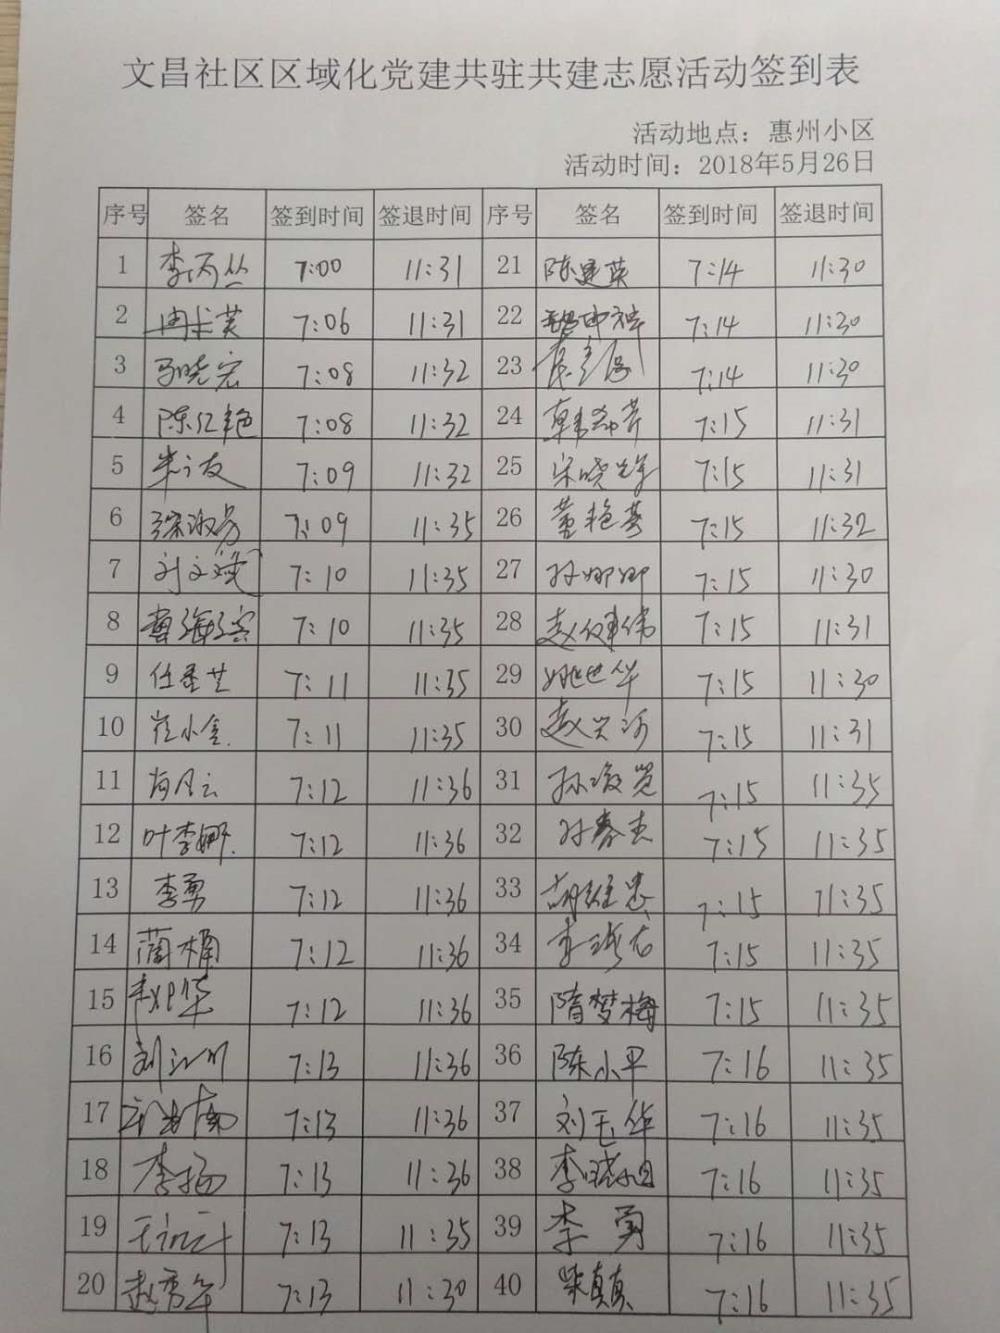 文昌社区区域化党建共驻共建志愿活动签到表
活动地点：惠州小区
活动时间：2018年5月26日
序号 签名 签到时间 签退时间 序号 签名 签到时间 签退时间
1 7:00 11:31 21 陈建英 7:14 11:30
2 7:06 11:31 22 7:14 11:30
3 7:08 11:32 23 7:14 11:30
4 陈红艳 7:08 11:32 24 7:15 11:31
5 朱立友 7:09 11:32 25 7:15 11:31
6 7:09 11:35 26 董艳英 7:15 11:32
7 刘文斌 7:10 11:35 27 孙娜娜 7:15 11:30
8 7:10 11:35 28 7:15 11:31
9 7:11 11:35 29 姚世华 7:15 11:30
10 崔小金 7:11 11:35 30 赵兴河 7:15 11:31
11 肖凡云 7:12 11:36 31 7:15 11:35
12 叶李娜 7:12 11:36 32 孙春杰 7:15 11:35
13 李勇 7:12 11:36 33 胡维忠 7:15 11:35
14 蔺楠 7:12 11:36 34 7:15 11:35
15 7:12 11:36 35 隋梦梅 7:15 11:35
16 刘江川 7:13 11:36 36 陈小平 7:16 11:35
17 7:13 11:36 37 刘玉华 7:16 11:35
18 李扬 7:13 11:36 38 7:16 11:35
19 7:13 11:35 39 李勇 7:16 11:35
20 7:13 11:30 40 柴真真 7:16 11:35